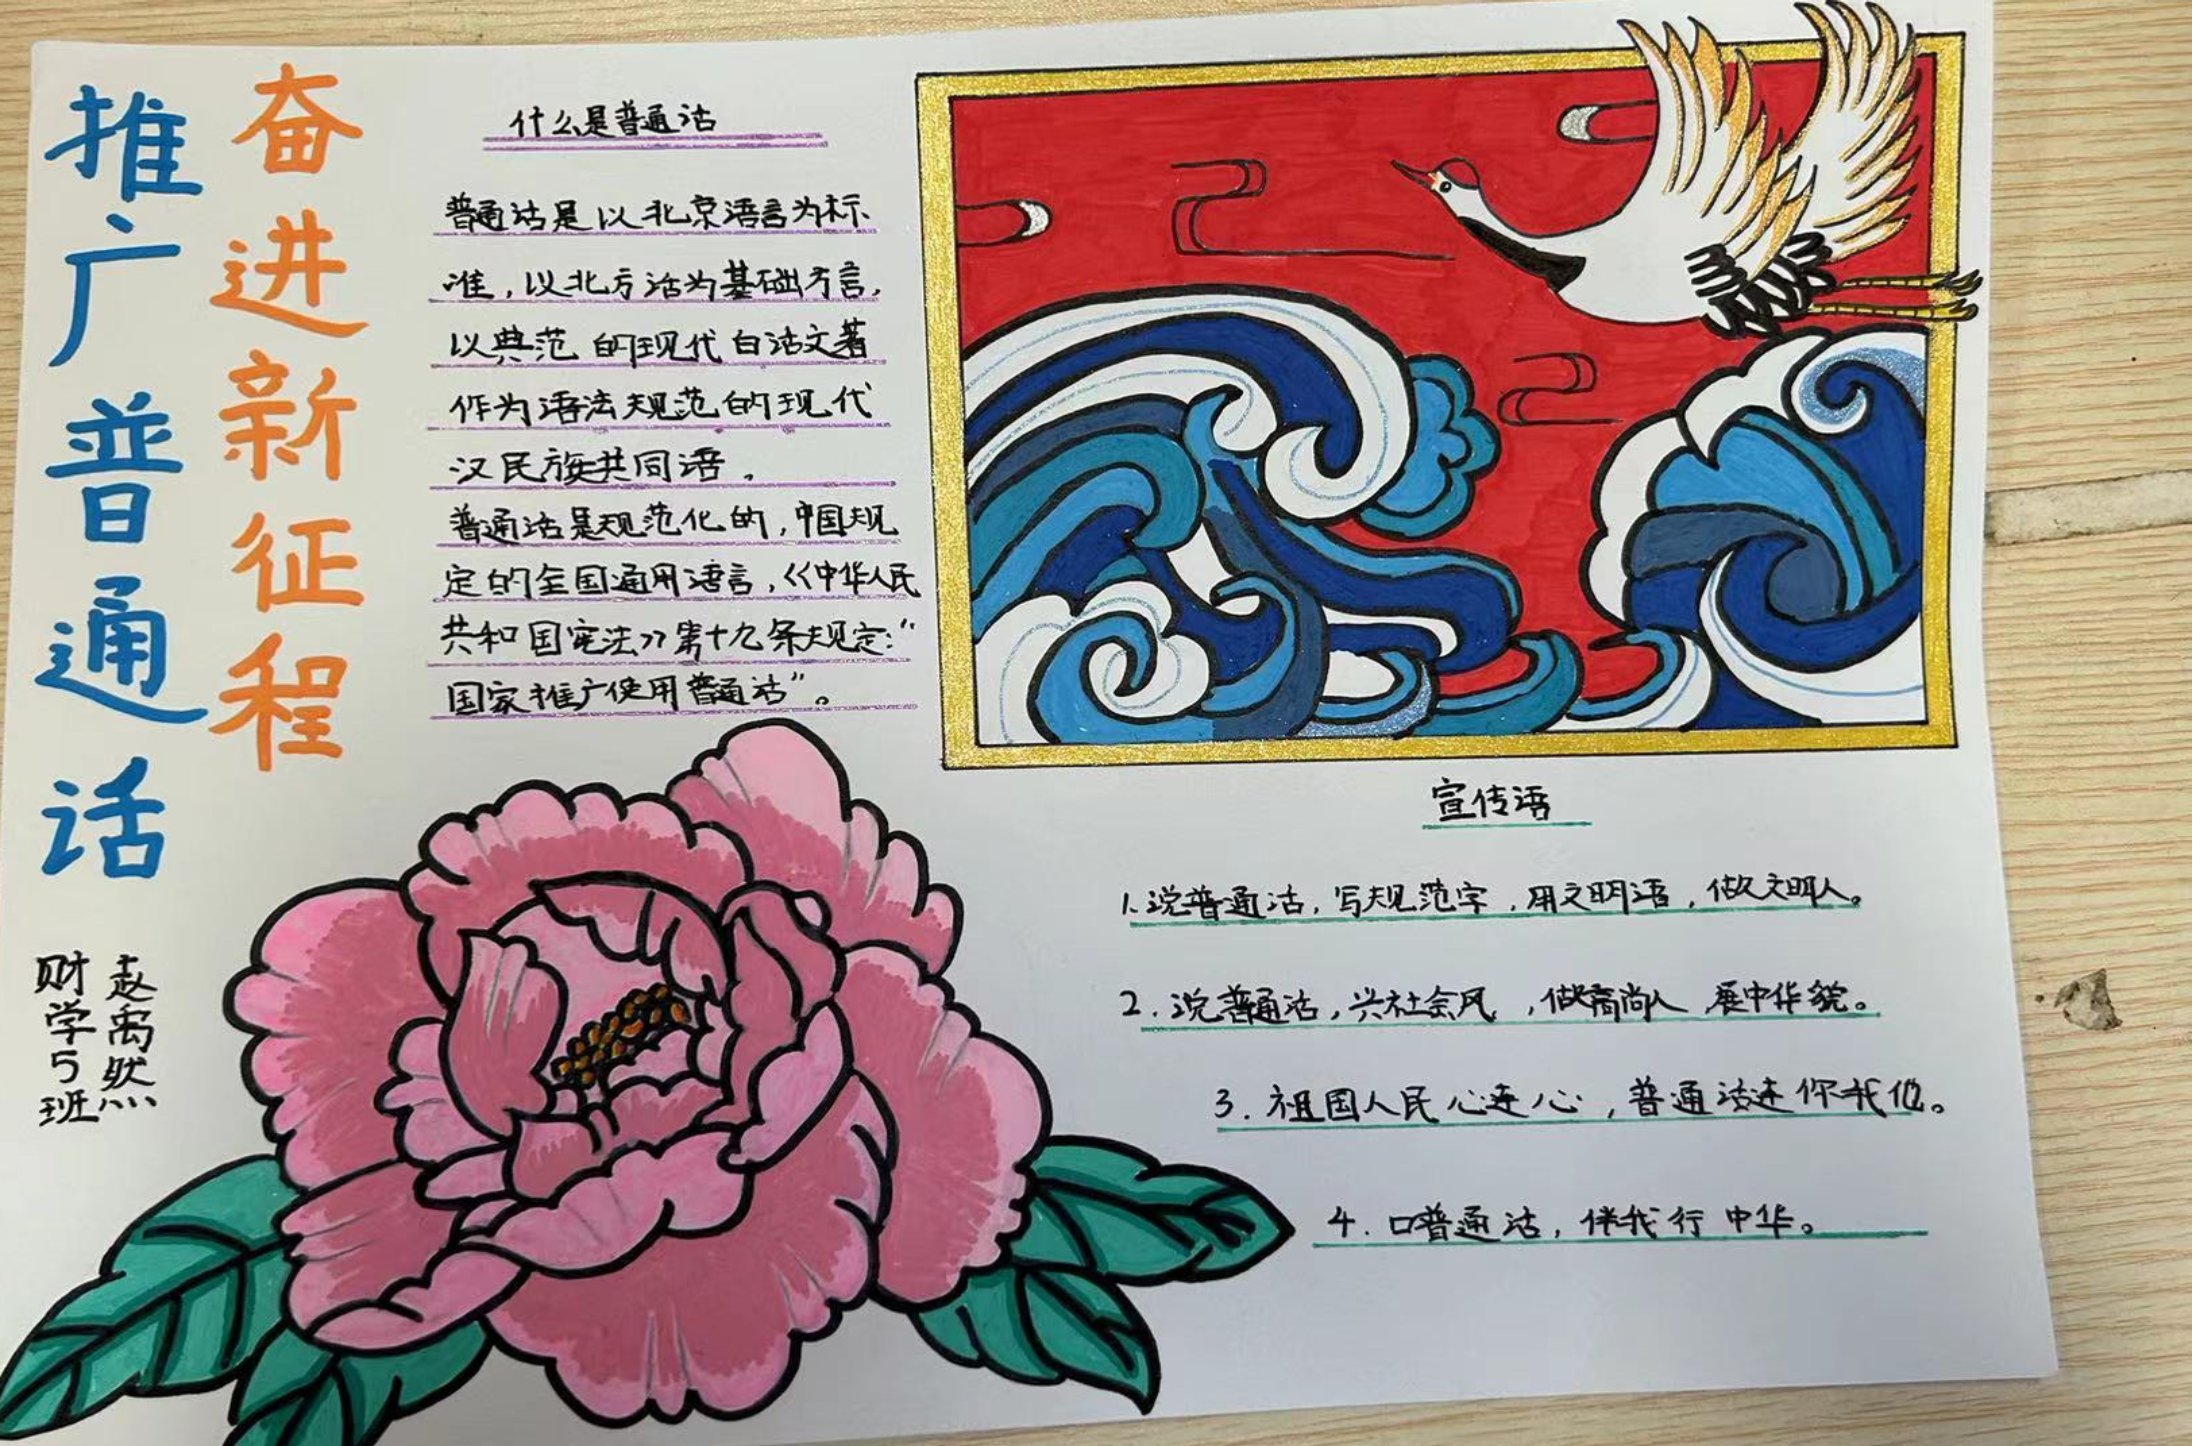 推广普通话
奋进新征程
什么是普通话
普通话是以北京语言为标
准,以北方话为基础方言,
以典范的现代白话文著
作为语法规范的现代
汉民族共同语。
普通话是规范化的,中国规
定的全国通用语言,《中华人民
共和国宪法》第十九条规定:“
国家推广使用普通话”。
宣传语
1.说普通话,写规范字,用文明语,做文明人。
2.说普通话,兴社会风,做高尚人,展中华貌。
3.祖国人民心连心,普通话连你我他。
4.口普通话,伴我行中华。
财学5班
赵禹然